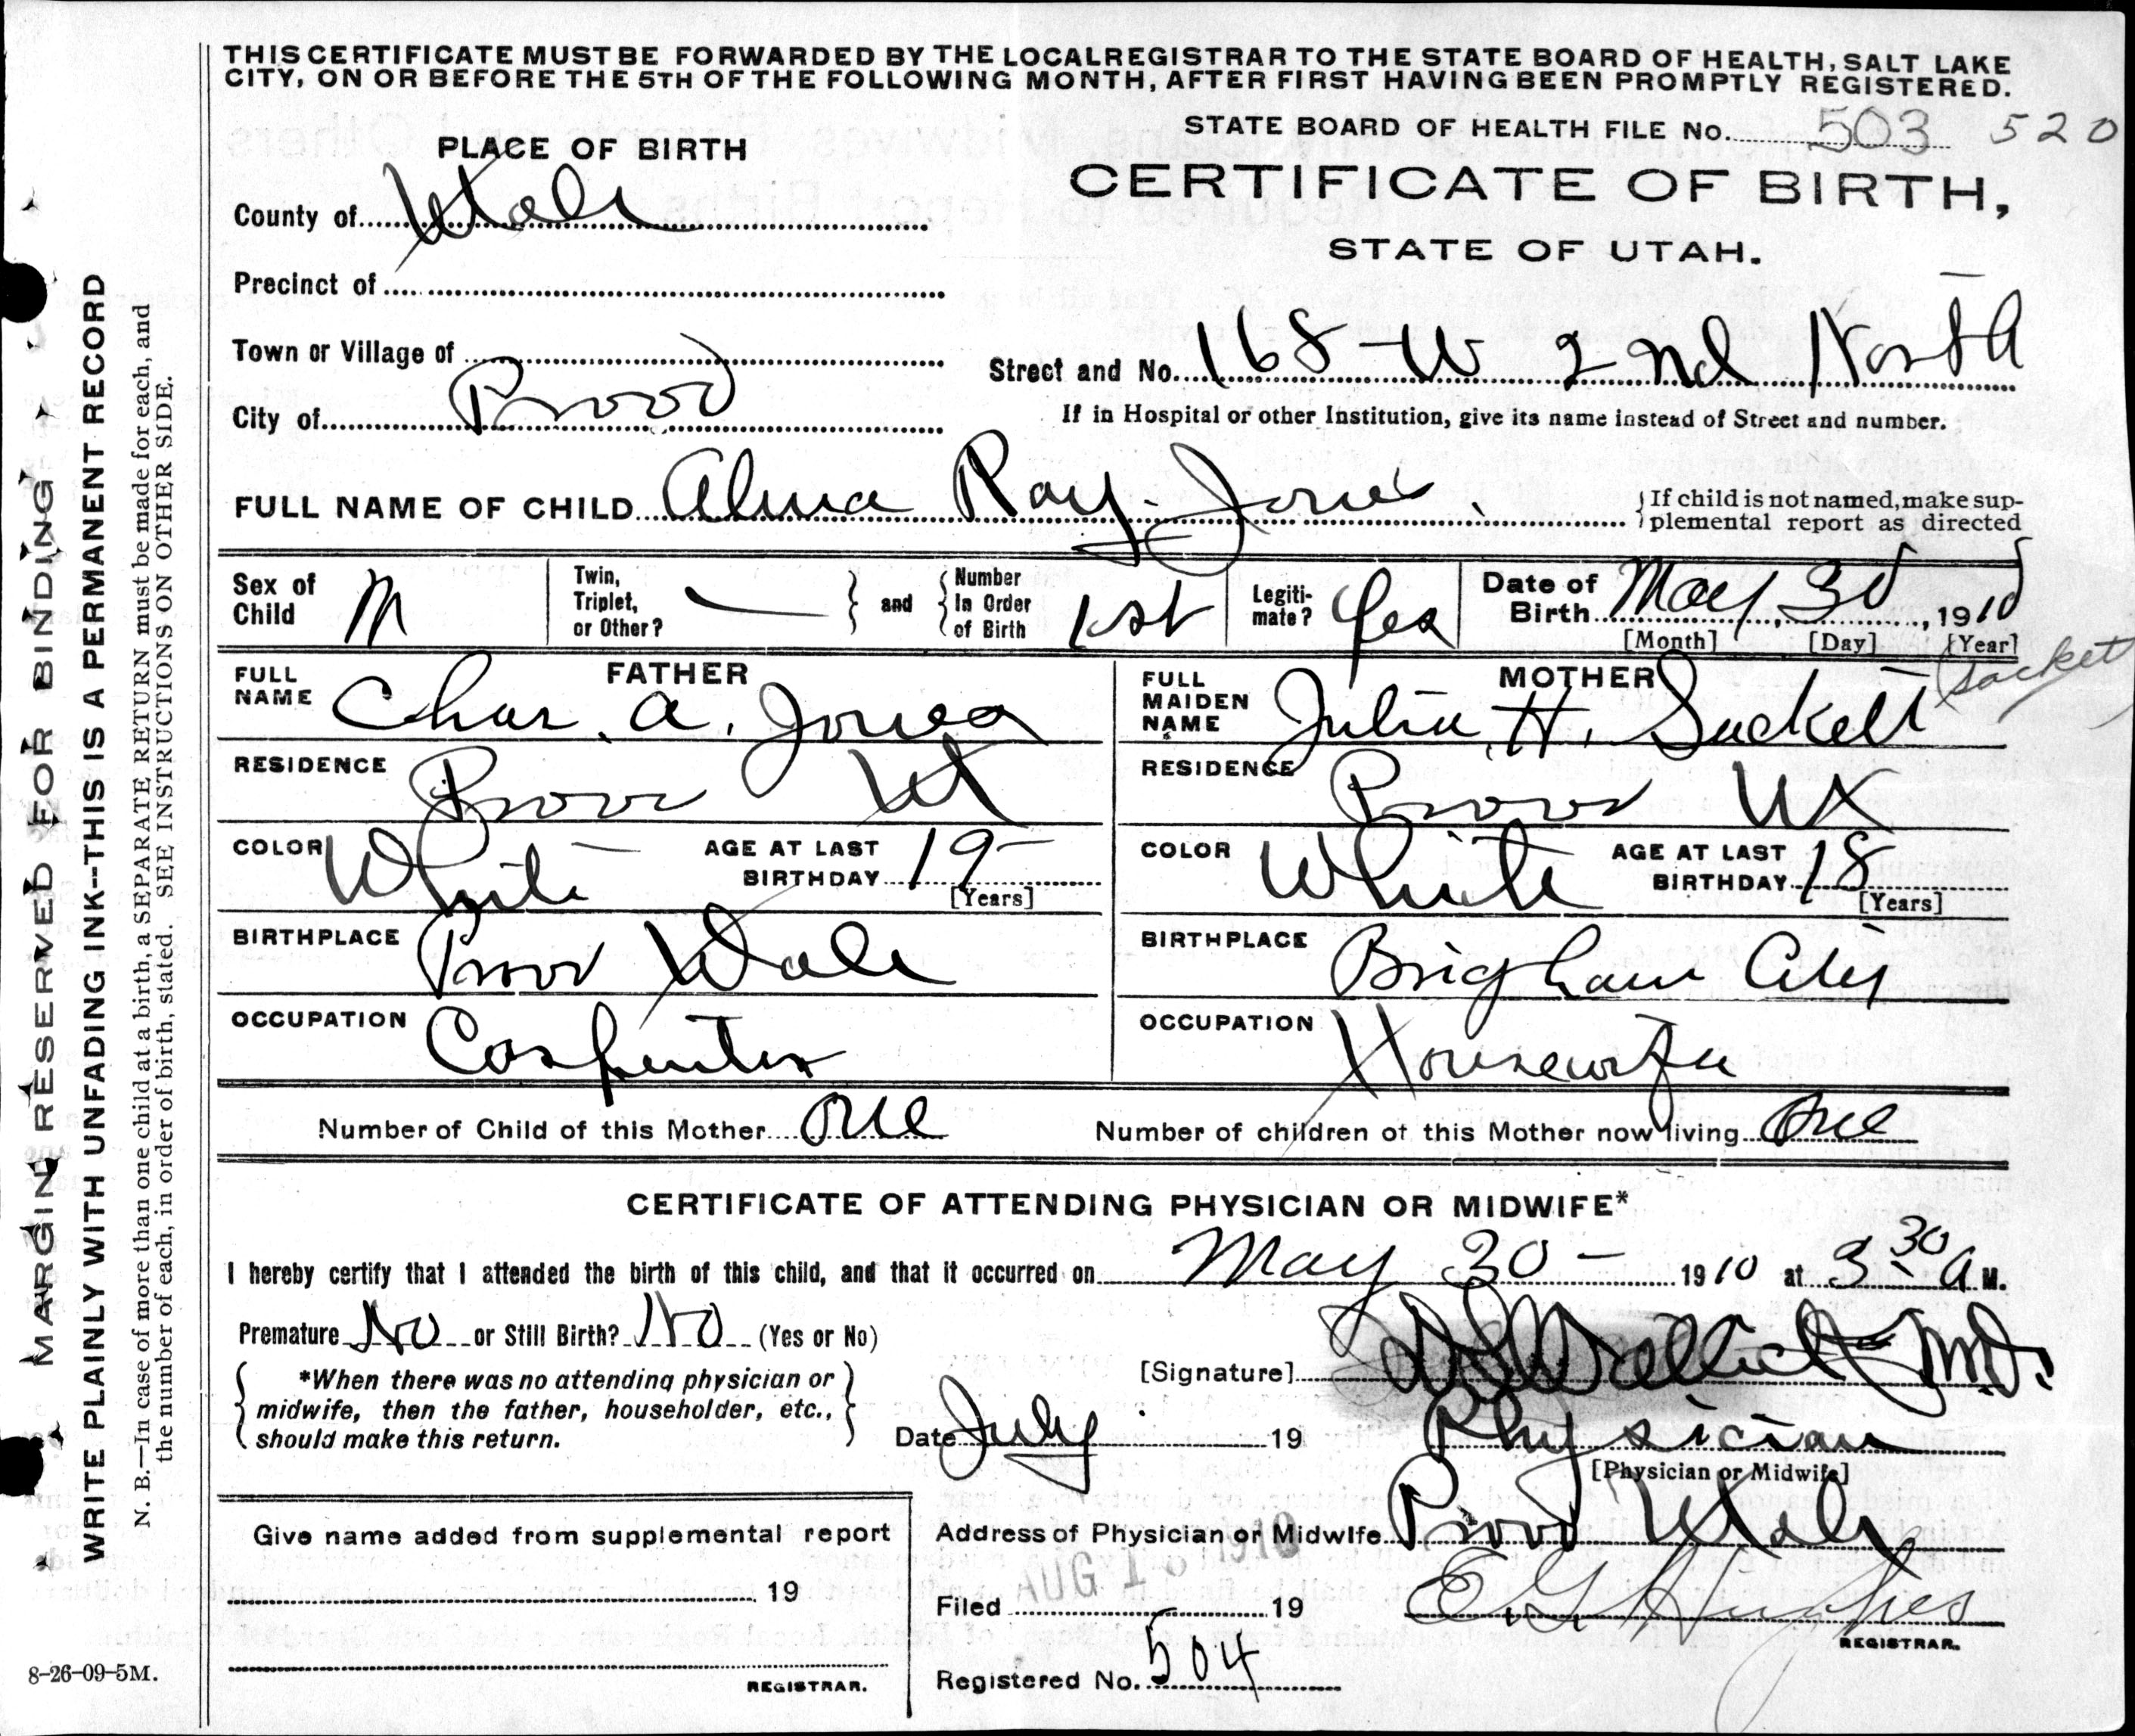 THIS CERTIFICATE MUST BE FORWARDED BY THE LOCAL REGISTRAR TO THE STATE BOARD OF HEALTH, SALT LAKE
CITY, ON OR BEFORE THE 5TH OF THE FOLLOWING MONTH, AFTER FIRST HAVING BEEN PROMPTLY REGISTERED.
STATE BOARD OF HEALTH FILE No. 503 520
PLACE OF BIRTH
CERTIFICATE OF BIRTH,
STATE OF UTAH.
County of Utah
Precinct of
Town or Village of
City of Provo
Street and No. 168 W 2nd North
If in Hospital or other Institution, give its name instead of Street and number.
FULL NAME OF CHILD Alma Ray Jones
If child is not named, make sup-
plemental report as directed
Sex of Child M
Twin, Triplet, or Other? —
and
Number In Order of Birth 1st
Legiti-mate? Yes
Date of Birth May 30, 1910
[Month] [Day] [Year]
FATHER
FULL NAME Chas. A. Jones
RESIDENCE Provo Ut
COLOR White
AGE AT LAST BIRTHDAY 19
[Years]
BIRTHPLACE Provo Utah
OCCUPATION Carpenter
MOTHER
FULL MAIDEN NAME Julia H. Sackett
(Sacket
RESIDENCE Provo Ut
COLOR White
AGE AT LAST BIRTHDAY 18
[Years]
BIRTHPLACE Brigham City
OCCUPATION Housewife
Number of Child of this Mother One
Number of children of this Mother now living One
CERTIFICATE OF ATTENDING PHYSICIAN OR MIDWIFE*
I hereby certify that I attended the birth of this child, and that it occurred on May 30 – 1910 at 3:30 A M.
Premature No or Still Birth? No (Yes or No)
*When there was no attending physician or
midwife, then the father, householder, etc.,
should make this return.
[Signature] M.D.
Date July 19
Physician
[Physician or Midwife]
Give name added from supplemental report
19
REGISTRAR.
Address of Physician or Midwife Provo Utah
AUG 1 1910
Filed 19
E G Hughes
REGISTRAR.
Registered No. 504
MARGIN RESERVED FOR BINDING
WRITE PLAINLY WITH UNFADING INK--THIS IS A PERMANENT RECORD
N. B.—In case of more than one child at a birth, a SEPARATE RETURN must be made for each, and
the number of each, in order of birth, stated. SEE INSTRUCTIONS ON OTHER SIDE.
8-26-09-5M.